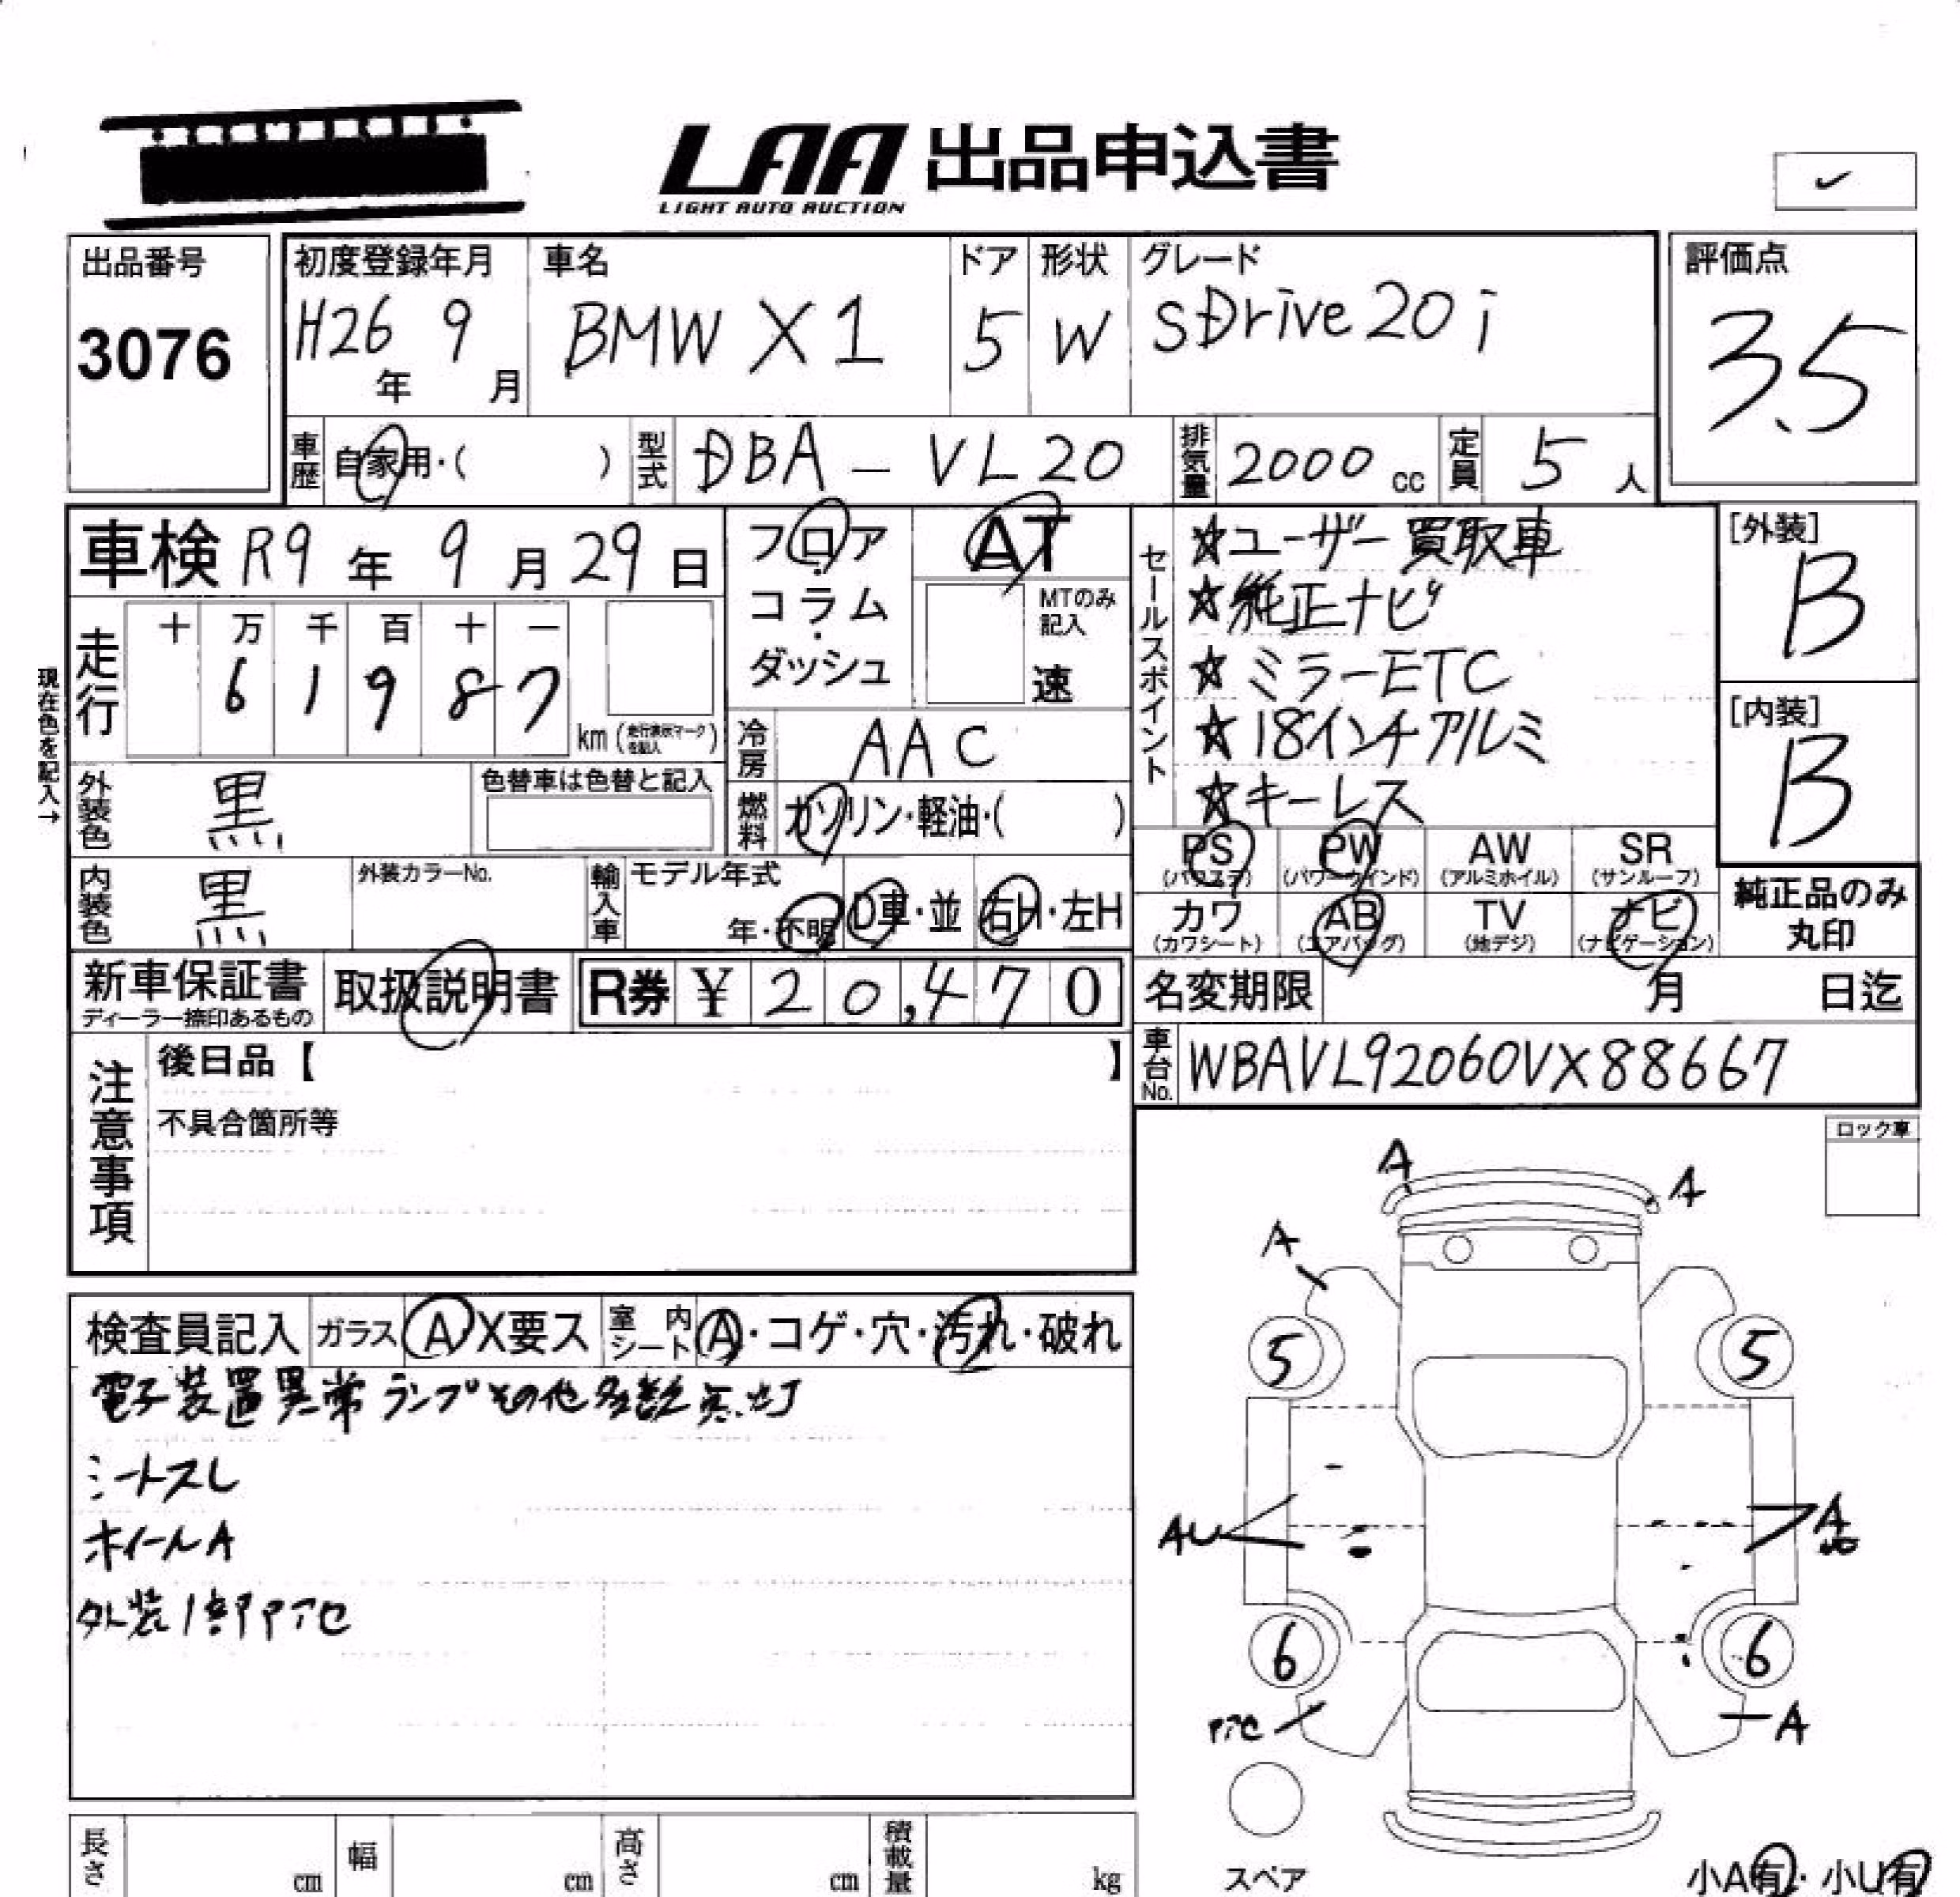 LAA 出品申込書
LIGHT AUTO AUCTION
✓
出品番号
3076
初度登録年月
H26年 9月
車名
BMW X1
ドア
5
形状
W
グレード
SDrive 20i
評価点
3.5
車歴 自家用・( )
型式 DBA - VL20
排気量 2000 cc
定員 5 人
車検 R9年 9月 29日
フロア・コラム・ダッシュ
AT
MTのみ記入
速
セールスポイント
☆ユーザー買取車
☆純正ナビ
☆ミラーETC
☆18インチアルミ
☆キーレス
[外装]
B
[内装]
B
現在色を記入→
走行
十 万 千 百 十 一
6 1 9 8 7
km(走行表示マークを記入)
冷房 AAC
外装色 黒
色替車は色替と記入
燃料 ガソリン・軽油・( )
内装色 黒
外装カラーNo.
輸入車
モデル年式
年・不明
D車・並
右H・左H
PS (パワステ)
PW (パワーウインド)
AW (アルミホイル)
SR (サンルーフ)
カワ (カワシート)
AB (エアバッグ)
TV (地デジ)
ナビ (ナビゲーション)
純正品のみ
丸印
新車保証書
ディーラー捺印あるもの
取扱説明書
R券 ¥ 20,470
名変期限 月 日迄
車台No. WBAVL92060VX88667
注意事項
後日品【 】
不具合箇所等
ロック車
検査員記入
ガラス A X要ス
室内シート A・コゲ・穴・汚れ・破れ
電子装置異常ランプその他多数点灯
シートスレ
ホイールA
外装1部アセ
A
A
A
5
5
AU
A
6
6
アセ
A
スペア
小A有・小U有
長さ cm
幅 cm
高さ cm
積載量 kg